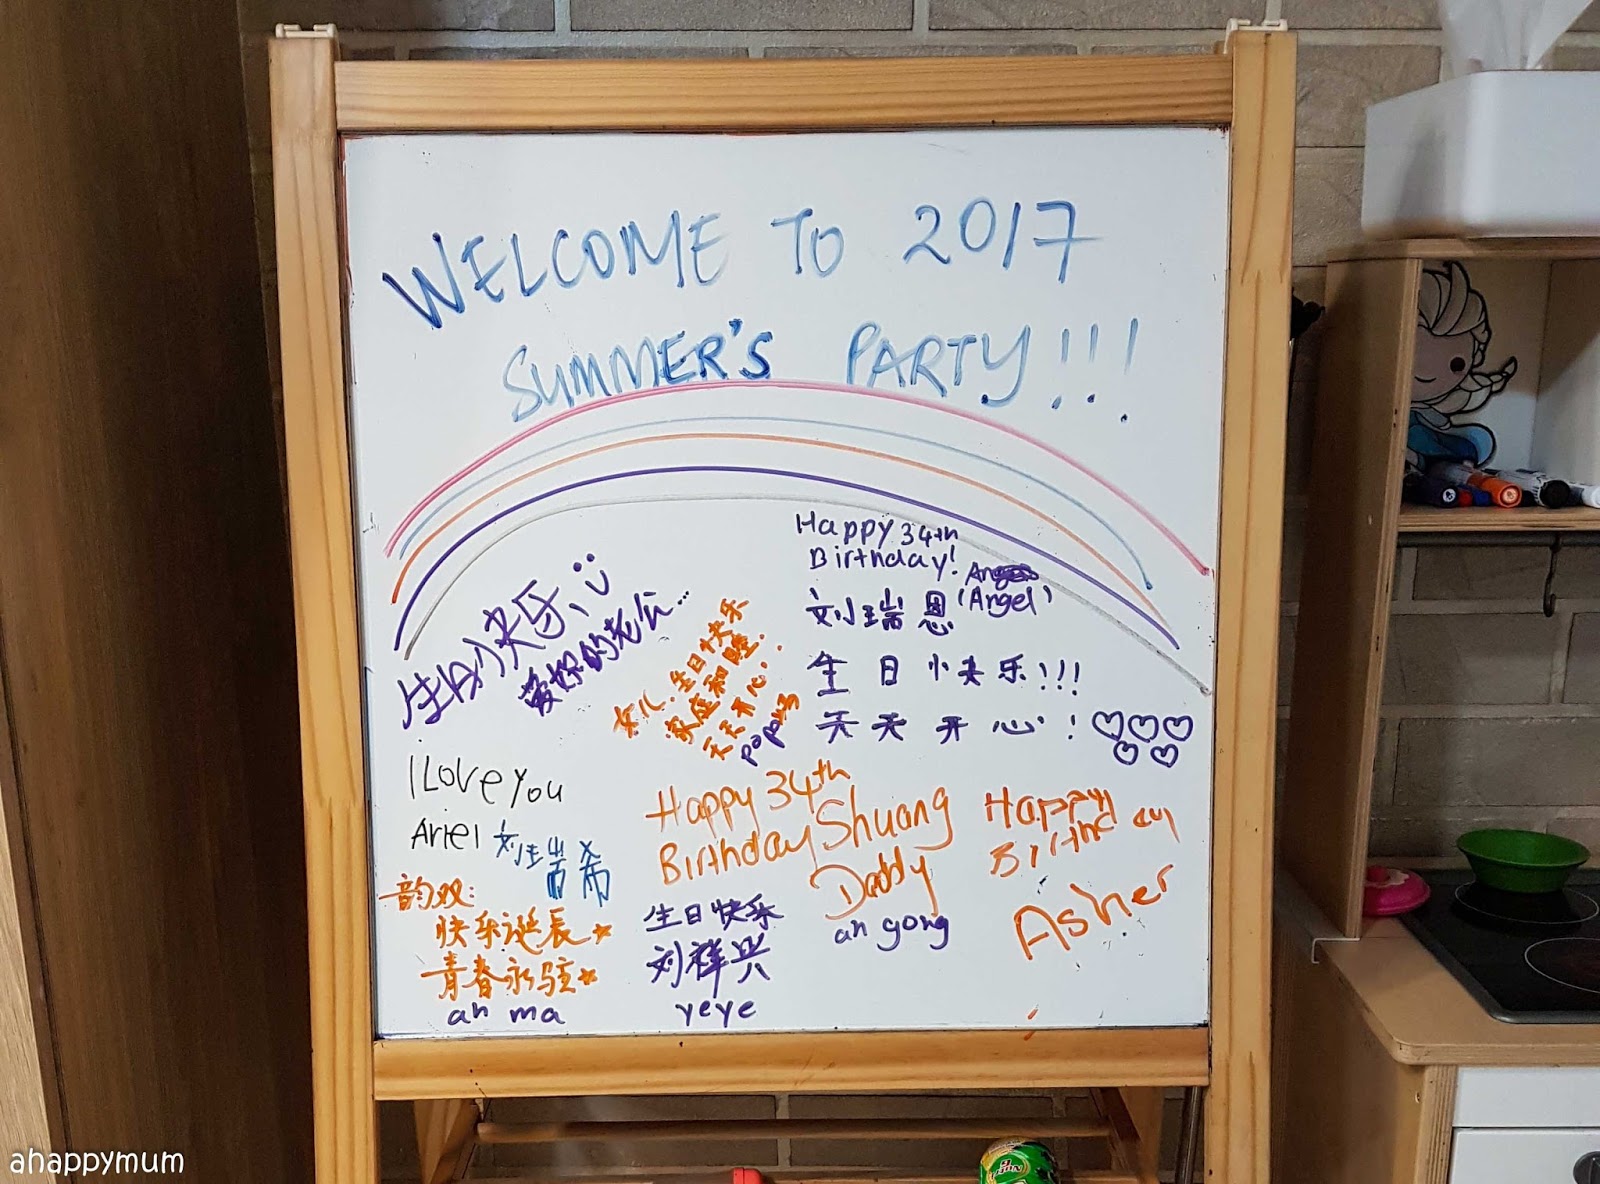 WELCOME TO 2017
SUMMER'S PARTY!!!
生日快乐
爱你的老公...
女儿.生日快乐
家庭和睦.
天天开心.
papa妈
Happy 34th
Birthday!
刘瑞恩 (Angel)
生日快乐!!!
天天开心!
I Love you
Ariel 刘瑞希
韵双:
快乐诞辰
青春永驻
ah ma
Happy 34th
Birthday Shuang
Daddy
ah gong
生日快乐
刘祥兴
yeye
Happy
Birthday
Asher
ahappymum